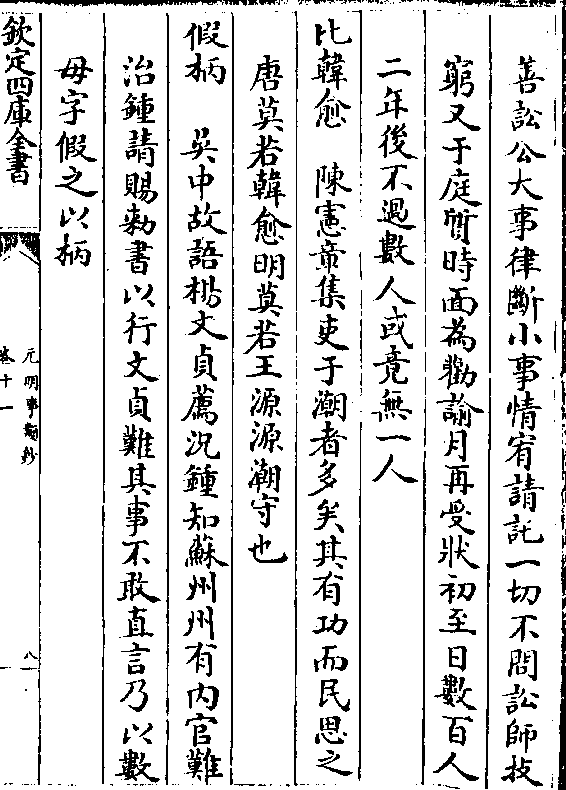 善訟公大事律斷小事情宥請託一切不問訟師技
窮又于庭質時面為勸諭月再受狀初至日數百人
二年後不過數人或竟無一人
比韓愈　陳憲章集吏于潮者多矣其有功而民思之
唐莫若韓愈明莫若王源源潮守也
假柄　吳中故語楊文貞薦況鍾知蘇州州有內官難
治鍾請賜勅書以行文貞難其事不敢直言乃以數
毋字假之以柄
欽定四庫全書
元明事類鈔
卷十一
八